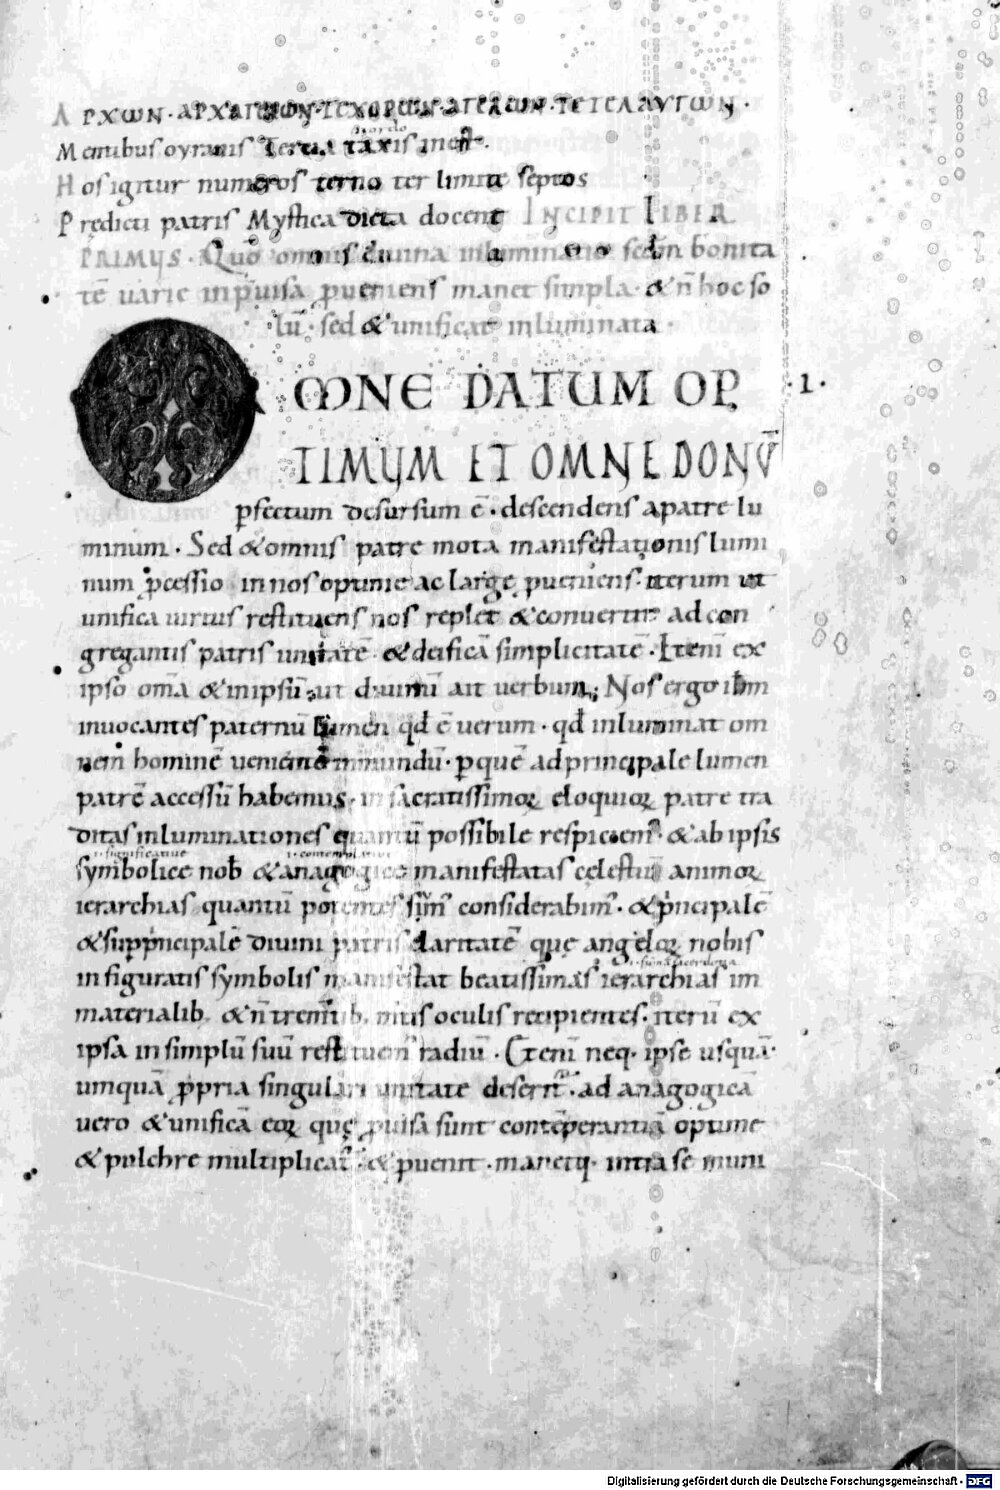 ΑΡΧωΝ · ΑΡΧΑΓΓΕΛωΝ · ΤΕ ΧΟΡωΝ · ΑΓΓΕΛωΝ · ΤΕ ΤΕΛΑΥΤωΝ ·
ordo
Mentibus oyranis Tertia taxis inest.
Hos igitur numeros terno ter limite septos
Predicti patris Mystica dicta docent INCIPIT LIBER
PRIMUS · Quō omnis diuina inluminatio scdm bonita
tē uarie inpuisa pueniens manet simpla · & n̄ hoc so
lū · sed & unificat inluminata ·
OMNE DATUM OP · 1 ·
TIMUM ET OMNE DONŪ
pfectum desursum ē · descendens a patre lu
minum · Sed & omnis patre mota manifestationis lumi
num pcessio in nos optime ac large pueniens · iterum ut
unifica uirtus restituens nos replet & conuertit ad con
gregantis patris unitatē & deificā simplicitatē · Etenī ex
ipso om̄a & in ipsū ut diuinū ait uerbum; Nos ergo ihm
inuocantes paternū lumen qd ē uerum · qd inluminat om
nem hominē uenientē in mundū · p quē ad principale lumen
patrē accessū habemus · in sacratissimoꝝ eloquioꝝ patre tra
ditas inluminationes quantū possibile respiciem̄ · & ab ipsis
.i. significatiue .i. contemplatiue
symbolice nob & anagogice manifestatas celestiū animoꝝ
ierarchias quantū potentes sim̄ considerabim̄ · & pncipalē
& suppncipalē diuini patris claritatē quę angeloꝝ nobis
in figuratis symbolis manifestat beatissimas ierarchias im
materialib · & n̄ trem̄tib · mtis oculis recipientes · iterū ex
ipsa in simplū suū restituem̄ radiū · Etenī neq · ipse usquā ·
umquā ppria singulari unitate deserit · ad anagogicā
uero & unificā eoꝝ quę puisa sunt contēperantiā optime
& pulchre multiplicat̄ · & puenit · manetq · intra se muni
Digitalisierung gefördert durch die Deutsche Forschungsgemeinschaft · DFG